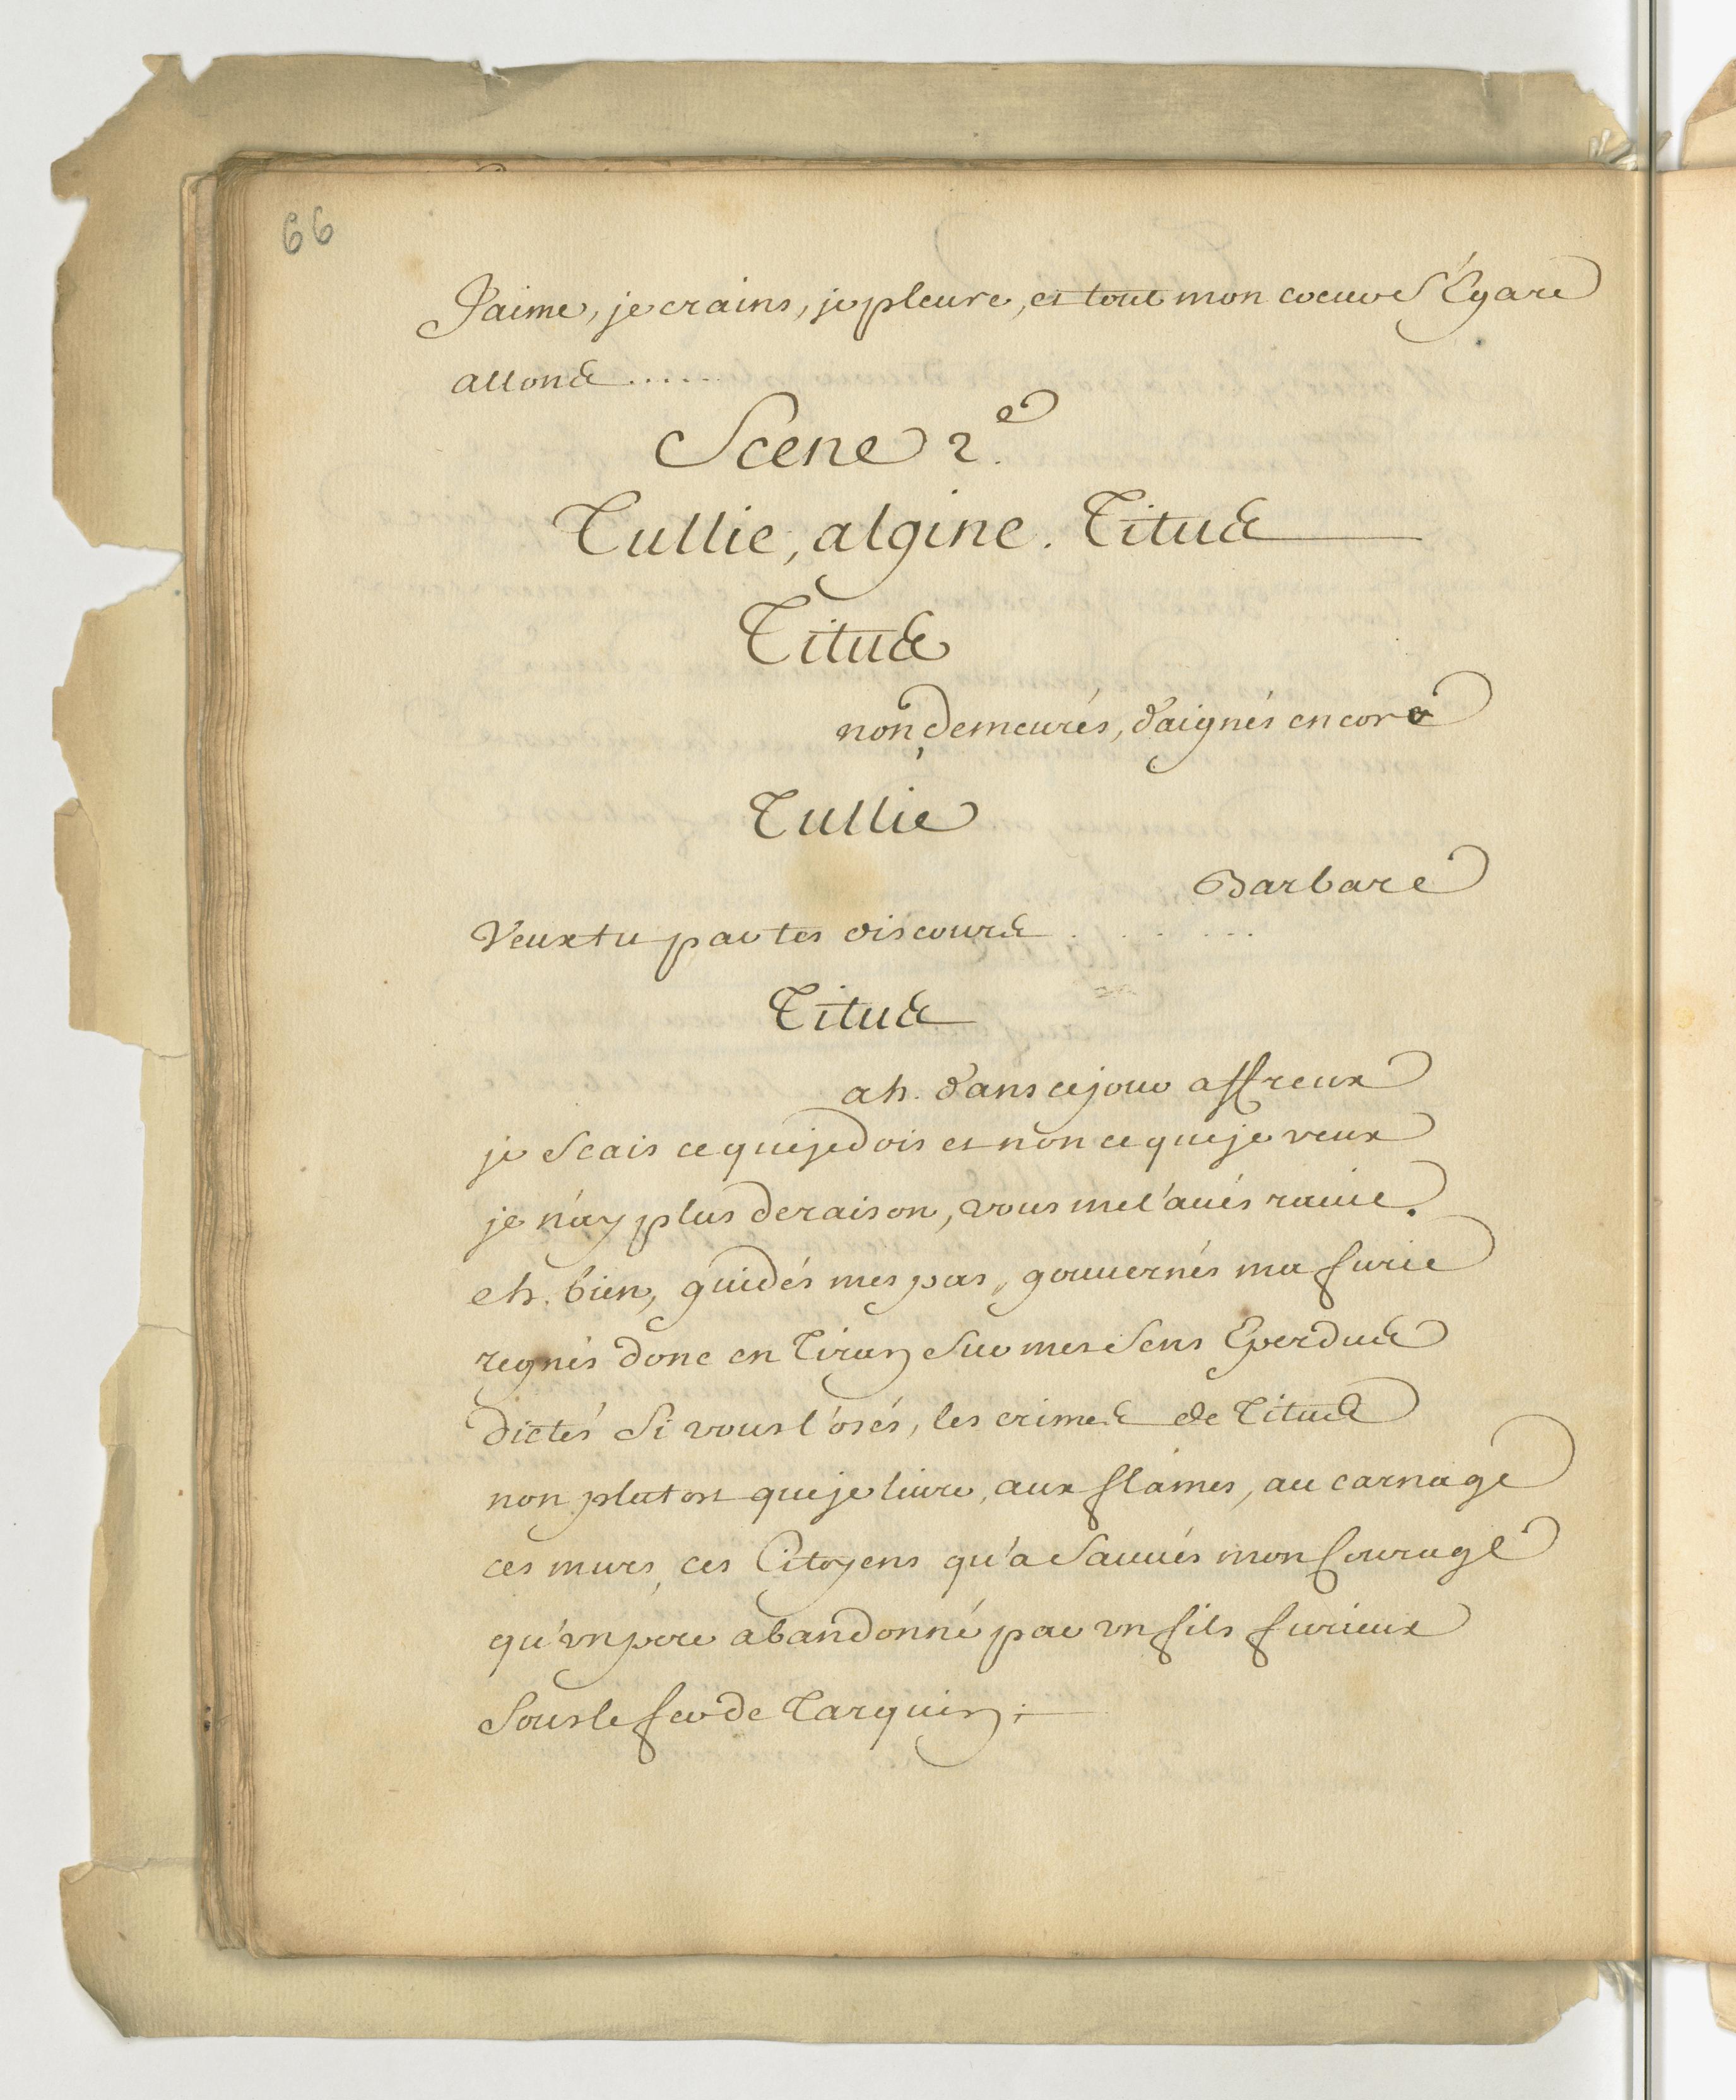 66
J'aime, je crains, je pleure, et tout mon coeur s'Egare
allons ......
Scene 2.e
Tullie, algine. Titus
Titus
non, demeurés, daignés encore
Tullie
Barbare
Veux tu par tes discours . . . . . . .
Titus
ah. dans ce jour affreux
je Scais ce que je dois et non ce que je veux
je n'ay plus de raison, vous me l'aués rauie.
eh. bien, guidés mes pas, gouuernés ma furie
regnés donc en Tiran Sur mes Sens Eperdus
dictés Si vous l'osés, les crimes de Titus
non plutost que je liure, aux flames, au carnage
ces murs, ces Citoyens qu'a Sauués mon Courage
qu'vn pere abandonné par vn fils furieux
Sous le fer de Tarquin;